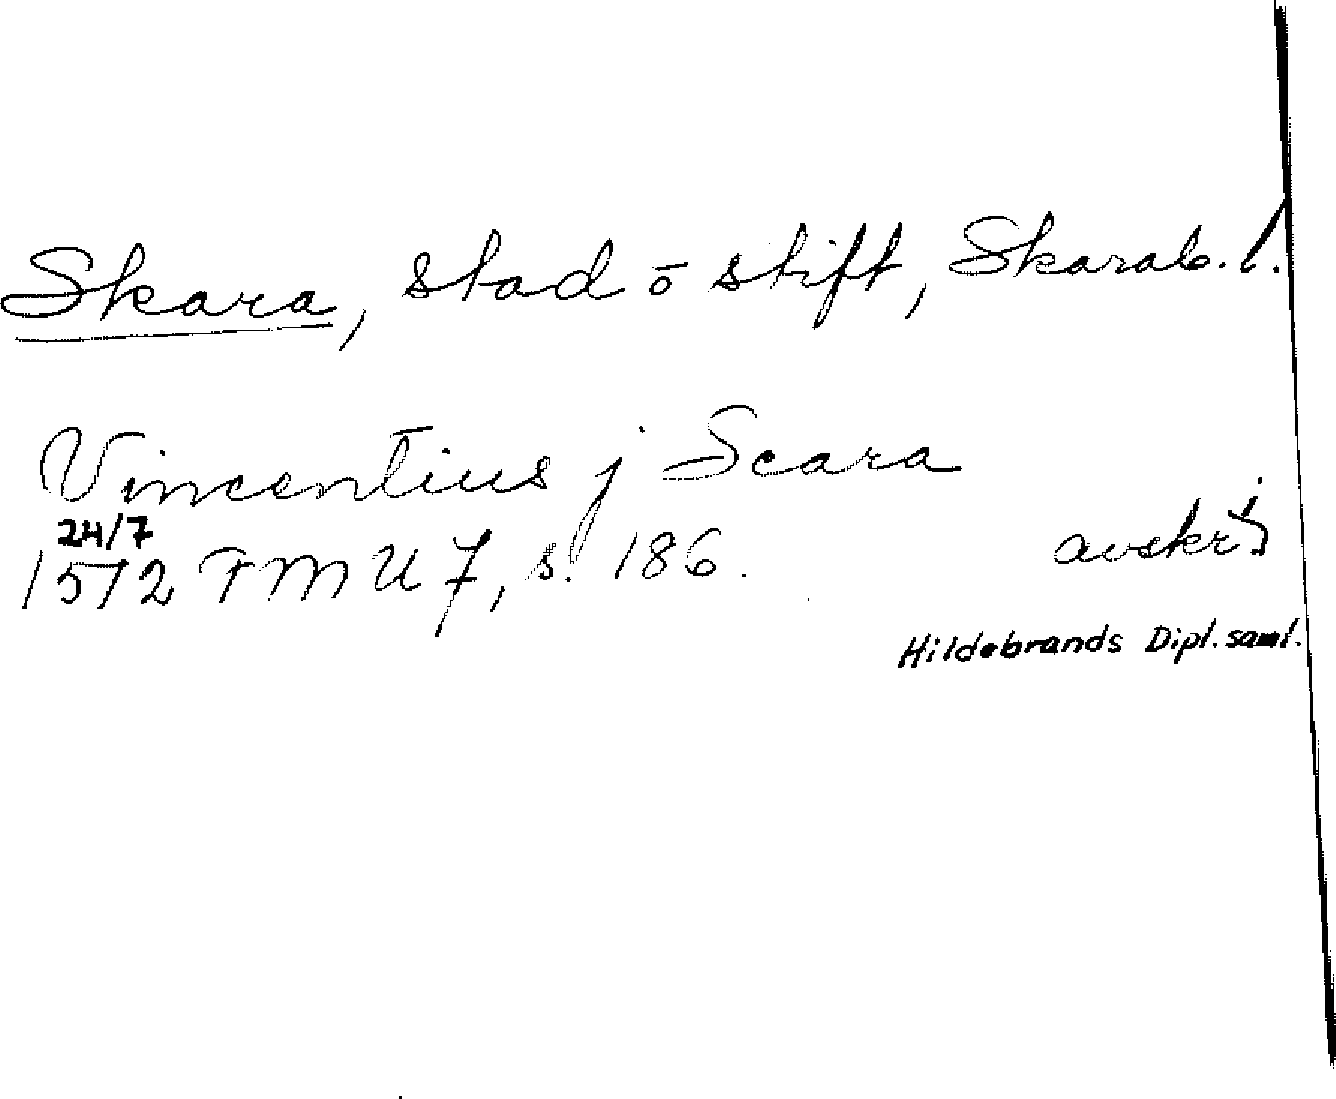 Skara, stad ō stift, Skarab. l.
Vincentius j Scara
24/7
1512 FMU 7, s. 186. avskr.
Hildebrands Dipl. saml.